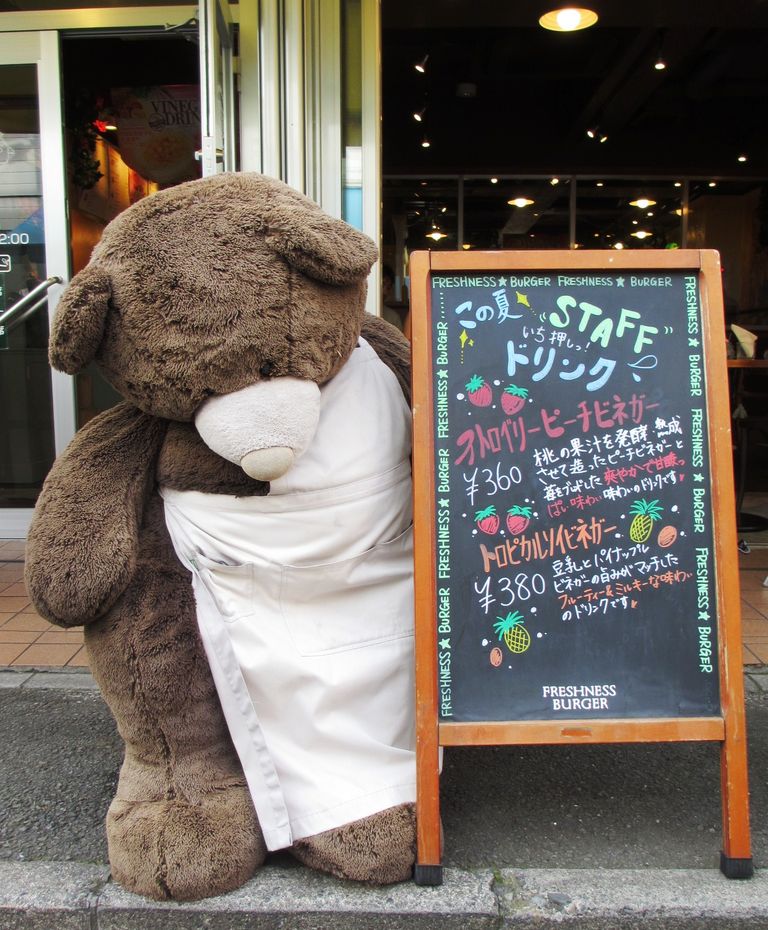 VINEG
DRIN
2:00
FRESHNESS★BURGER FRESHNESS★BURGER
この夏
"STAFF"
いち押しっ!
ドリンク
ストロベリーピーチビネガー
¥360
桃の果汁を発酵・熟成
させて造ったピーチビネガーと
苺をつぶした爽やかで甘酸っ
ぱい味わい味わいのドリンクです
トロピカルソイビネガー
¥380
豆乳とパイナップル
ビネガーの旨みがマッチした
フルーティー&ミルキーな味わい
のドリンクです
FRESHNESS
BURGER
FRESHNESS★BURGER FRESHNESS★BURGER FRESHNESS★BURGER
FRESHNESS★BURGER FRESHNESS★BURGER FRESHNESS★BURGER